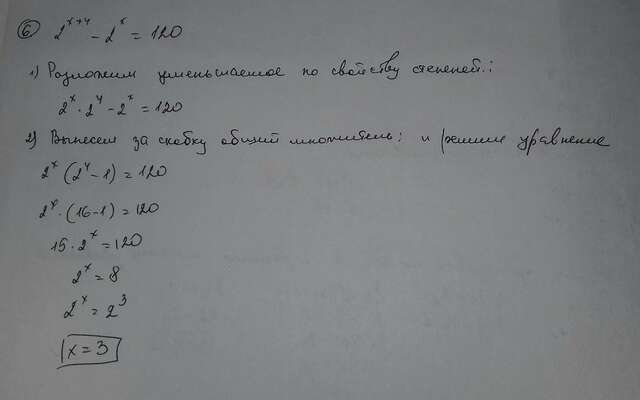 6 2^{x+4} - 2^x = 120
1) Разложим уменьшаемое по свойству степеней:
2^x · 2^4 - 2^x = 120
2) Вынесем за скобку общий множитель: и решим уравнение
2^x (2^4 - 1) = 120
2^x · (16 - 1) = 120
15 · 2^x = 120
2^x = 8
2^x = 2^3
x = 3